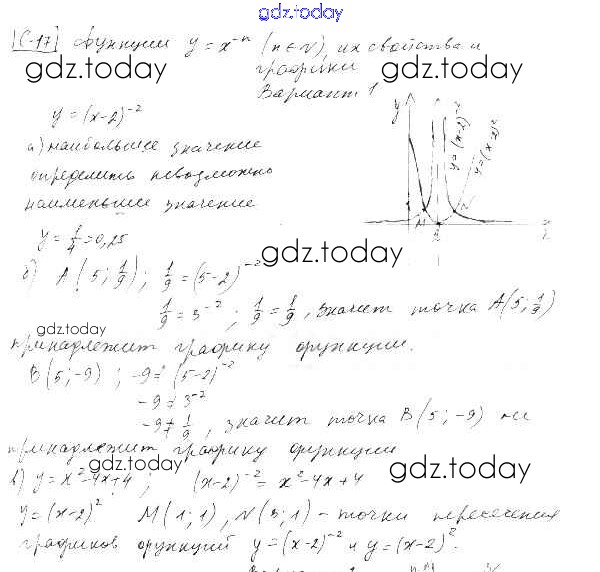 gdz.today
[С-17] Функции y = x⁻ⁿ (n ∈ N), их свойства и
gdz.today
графики
gdz.today
Вариант 1
y = (x-2)⁻²
а) наибольшее значение
определить невозможно
наименьшее значение
y = 1/4 = 0,25
y
y=(x-2)⁻²
y=(x-2)²
M
N
2
x
gdz.today
б) A (5; 1/9); 1/9 = (5-2)⁻²
1/9 = 3⁻²; 1/9 = 1/9, значит точка A(5; 1/9)
gdz.today
принадлежит графику функции.
B (5; -9); -9 ≠ (5-2)⁻²
-9 ≠ 3⁻²
-9 ≠ 1/9, значит точка B (5; -9) не
принадлежит графику функции
gdz.today
gdz.today
в) y = x² - 4x + 4; (x-2)⁻² = x² - 4x + 4
y = (x-2)² M (1; 1), N (3; 1) - точки пересечения
графиков функций y = (x-2)⁻² и y = (x-2)².
gdz.today